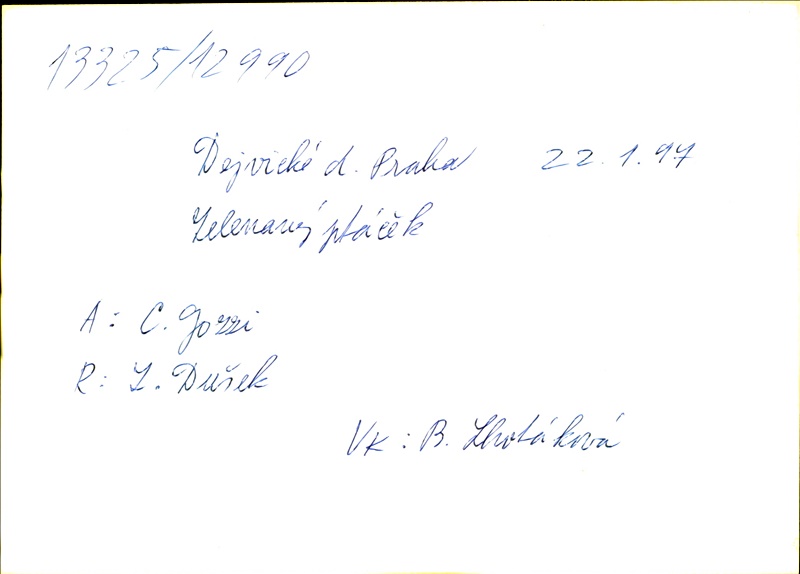 13325/12990
Dejvické d. Praha 22.1.97
Zelenavý ptáček
A: C. Gozzi
R: Z. Dušek
VK: B. Lhotáková